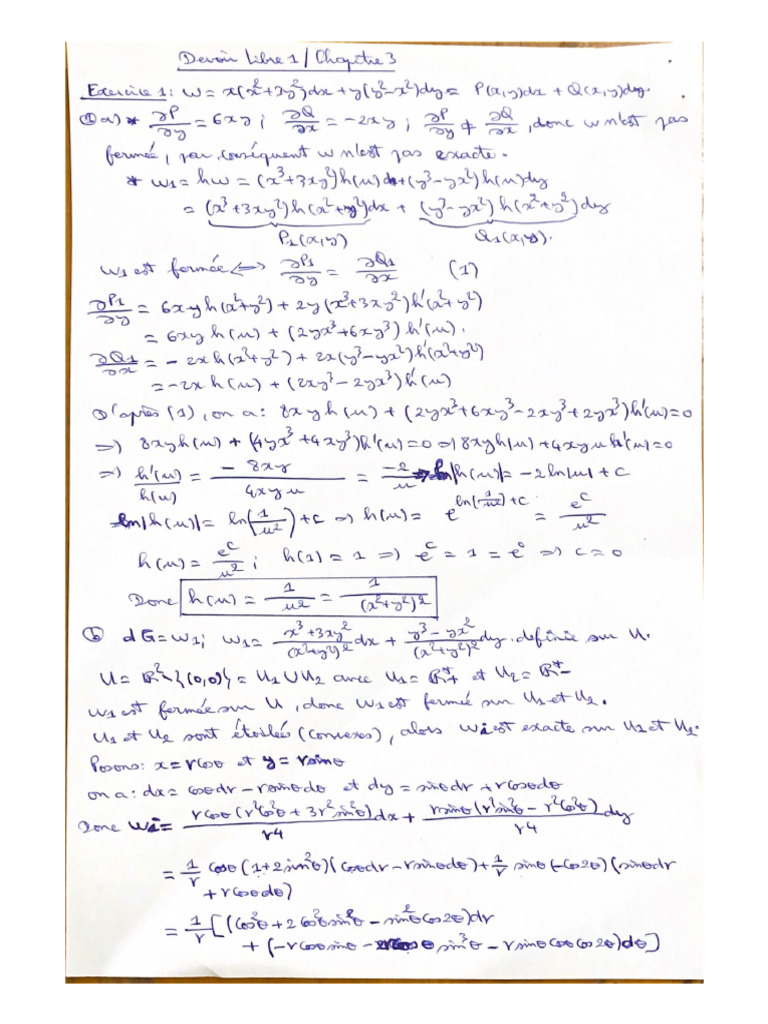 Devoir Libre 1 / Chapitre 3
Exercice 1: w = x(x²+3y²)dx + y(y²-x²)dy = P(x,y)dx + Q(x,y)dy.
① a) * ∂P/∂y = 6xy ; ∂Q/∂x = -2xy ; ∂P/∂y ≠ ∂Q/∂x , donc w n'est pas
fermée, par conséquent w n'est pas exacte.
* w1 = hw = (x³+3xy²)h(u)dx + (y³-yx²)h(u)dy
= (x³+3xy²)h(x²+y²)dx + (y³-yx²)h(x²+y²)dy
P1(x,y) Q1(x,y).
w1 est fermée <=> ∂P1/∂y = ∂Q1/∂x (1)
∂P1/∂y = 6xyh(x²+y²) + 2y(x³+3xy²)h'(x²+y²)
= 6xyh(u) + (2yx³+6xy³)h'(u).
∂Q1/∂x = -2xh(x²+y²) + 2x(y³-yx²)h'(x²+y²)
= -2xh(u) + (2xy³-2yx³)h'(u)
D'après (1), on a: 8xyh(u) + (2yx³+6xy³-2xy³+2yx³)h'(u)=0
=> 8xyh(u) + (4yx³+4xy³)h'(u)=0 => 8xyh(u)+4xyuh'(u)=0
=> h'(u)/h(u) = -8xy/4xyu = -2/u => ln|h(u)| = -2ln|u| + c
ln|h(u)| = ln(1/u²) + c => h(u) = e^{ln(1/u²)+c} = e^c/u²
h(u) = e^c/u² ; h(1) = 1 => e^c = 1 = e^0 => c = 0
Donc h(u) = 1/u² = 1/(x²+y²)²
b) dG = w1; w1 = x³+3xy²/(x²+y²)² dx + y³-yx²/(x²+y²)² dy. définie sur U.
U = ℝ²\{(0,0)} = U1 ∪ U2 avec U1 = ℝ*+ et U2 = ℝ*-
w1 est fermée sur U, donc w1 est fermé sur U1 et U2.
U1 et U2 sont étoilés (convexes), alors w1 est exacte sur U1 et U2.
Posons: x = rcosθ et y = rsinθ
on a: dx = cosθdr - rsinθdθ et dy = sinθdr + rcosθdθ
Donc w1 = rcosθ(r²cos²θ + 3r²sin²θ)/r4 dx + rsinθ(r²sin²θ - r²cos²θ)/r4 dy
= 1/r cosθ(1+2sin²θ)(cosθdr - rsinθdθ) + 1/r sinθ(-cos2θ)(sinθdr
+ rcosθdθ)
= 1/r [(cos²θ + 2cos²θsin²θ - sin²θcos2θ)dr
+ (-rcosθsinθ - 2rcosθ sin³θ - rsinθcosθcos2θ)dθ]